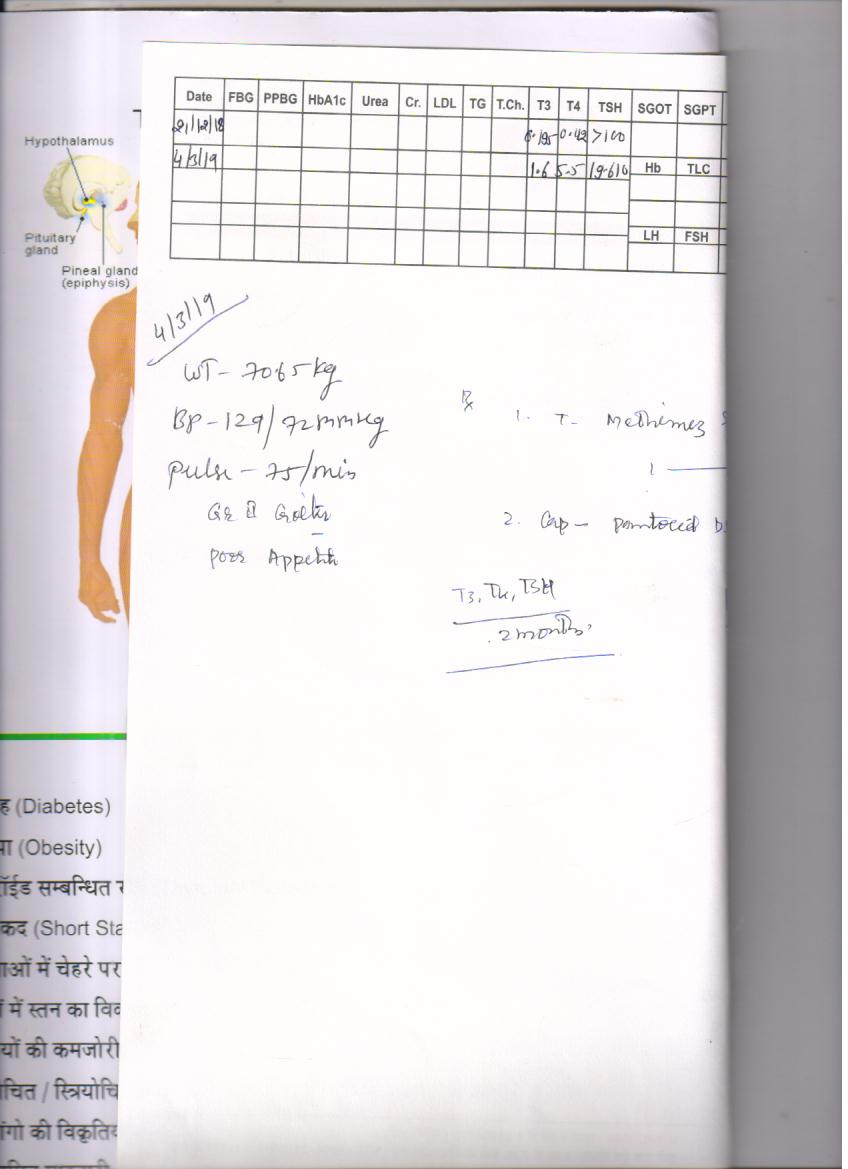 Hypothalamus
Pituitary
gland
Pineal gland
(epiphysis)
ह (Diabetes)
(Obesity)
सम्बन्धित
कद (Short Sta
ओं में चेहरे पर
में स्तन का
यों की कमजोरी
चित / स्त्रियोचि
गो की विकृति
Date FBG PPBG HbA1c Urea Cr. LDL TG T.Ch. T3 T4 TSH SGOT SGPT
21/12/18 0.195 0.42 >100
4/3/19 1.6 5.5 19.610 Hb TLC
LH FSH
4/3/19
WT- 70.65 kg
BP- 129/72 mmHg
Pulse - 75/min
Goitr
Poor Appetit
℞
1. T-
1
2. Cap -
T3, T4, TSH
2 months.